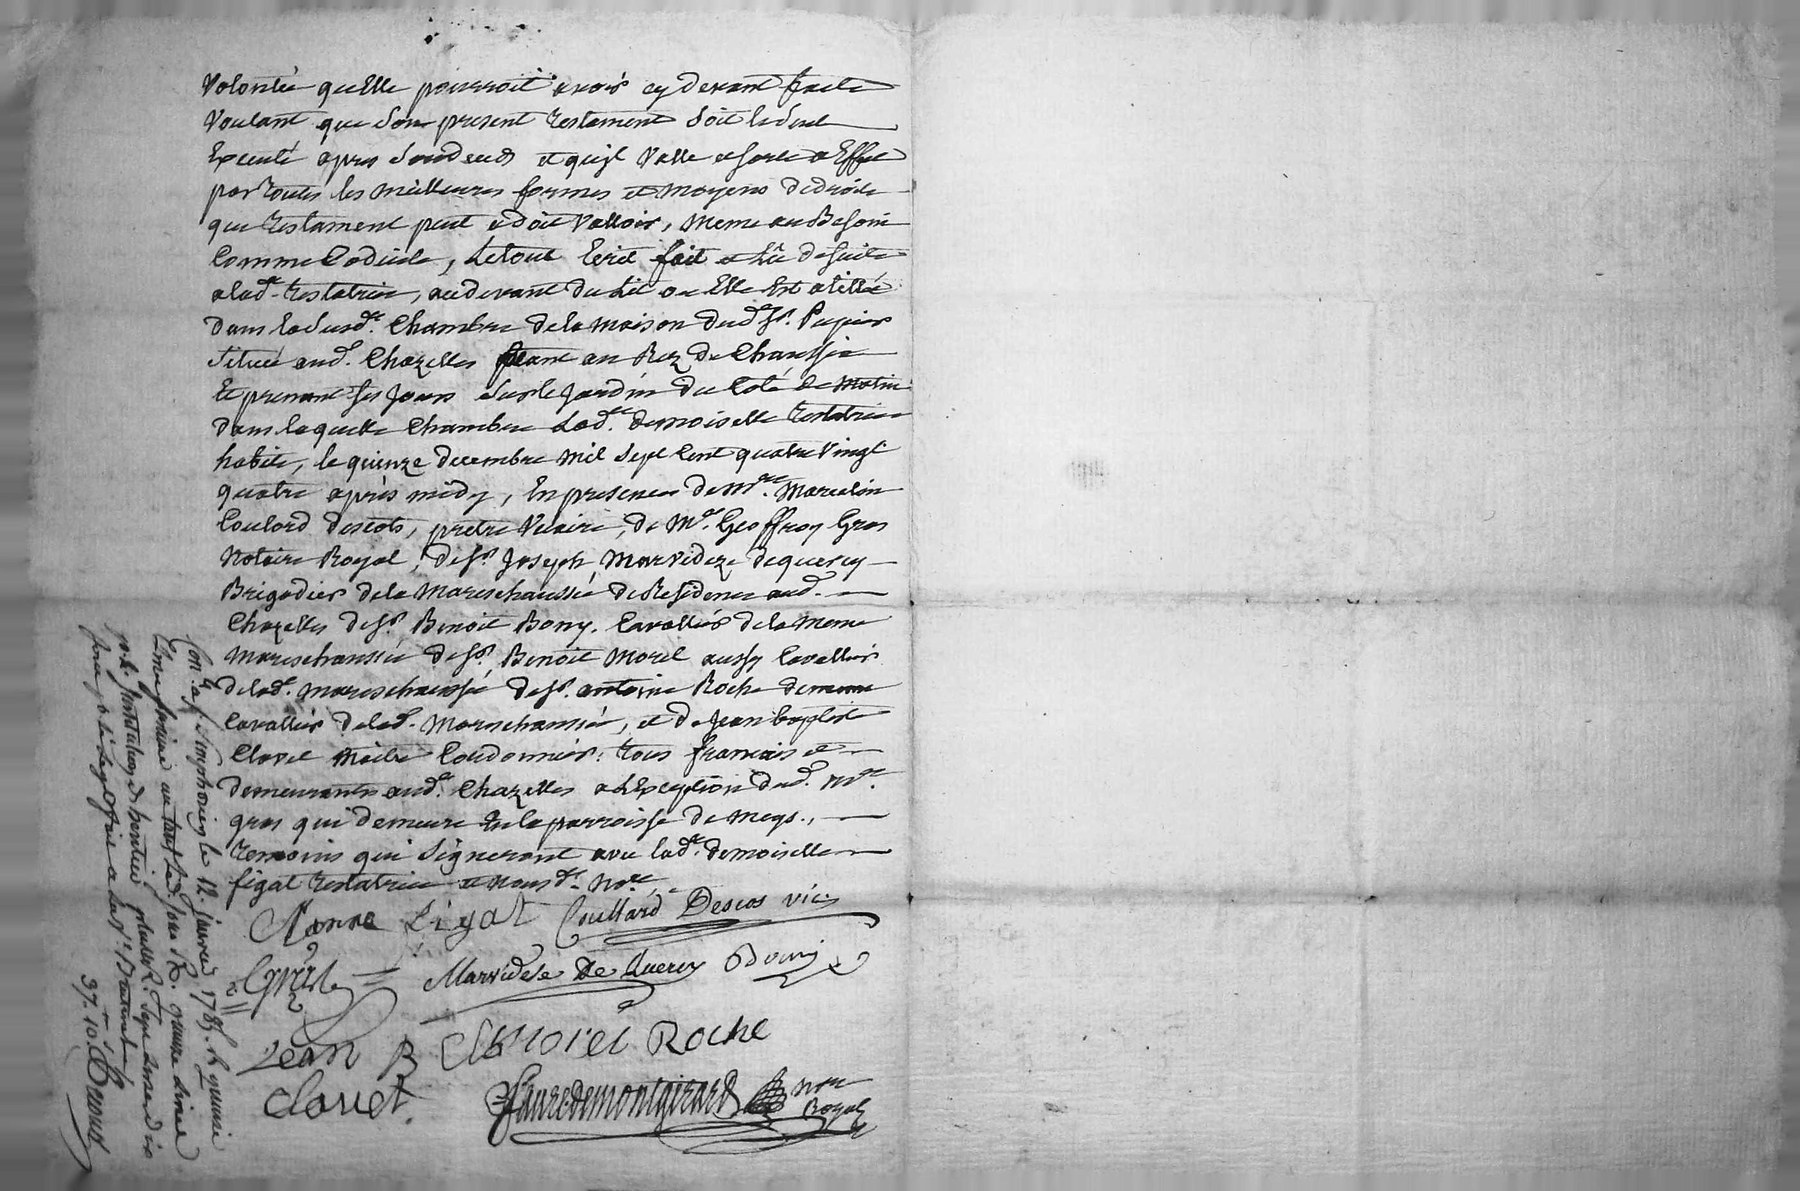 Volontée quelle pourroit avoir cy devant faite
Voulant que son present testament soit le seul
Executé apres son deces et quijl valle et sorte a Effet
par toutes les meilleures formes et moyens de droit
que testament peut et doit valloir, meme au Besoin
Comme Codicile, le tout Ecrit fait et Lû de suite
a lad.e testatrice, au devant du Lit ou Elle Est alittée
dans la susd.e Chambre de la maison dud. Sr. Pupier
située aud. Chazelles etant au Rez de Chaussée
Et prenant ses Jours sur le Jardin du Coté de matin
dans laquelle Chambre lad.e demoiselle testatrice
habite, le quinze decembre mil sept Cent quatre vingt
quatre après midy, En presence de mre. Marcelin
Coulard descots, pretre vicaire, de Me. Geoffroy Gras
Notaire Royal, de Sr. Joseph Marvideze dequercy
Brigadier de la Mareschaussée de Residence aud.
Chazelles de Sr. Benoit Bony, Cavallier de la meme
Mareschaussée de Sr. Benoit Morel aussy Cavallier
de lad. mareschaussée de Sr. antoine Roche de meme
Cavallier de lad. Mareschaussée, et de Jean baptiste
Clavel maitre Cordonnier, tous francais et
demeurants aud. Chazelles a L'Exception dud. Me.
gras qui demeure En la parroisse de meys.,
temoins qui signeront avec lad.e demoiselle
figat testatrice et nous d. No.re
Nanne Figat Coullard Descos vic.
Gras Marvidese De Quercy Bony
Jean B Morel Roche
Clavel. Fauredemontgirard Nre
Royal
Con.lé a St. Simphorien le 12. janvier 1785. R. quinze